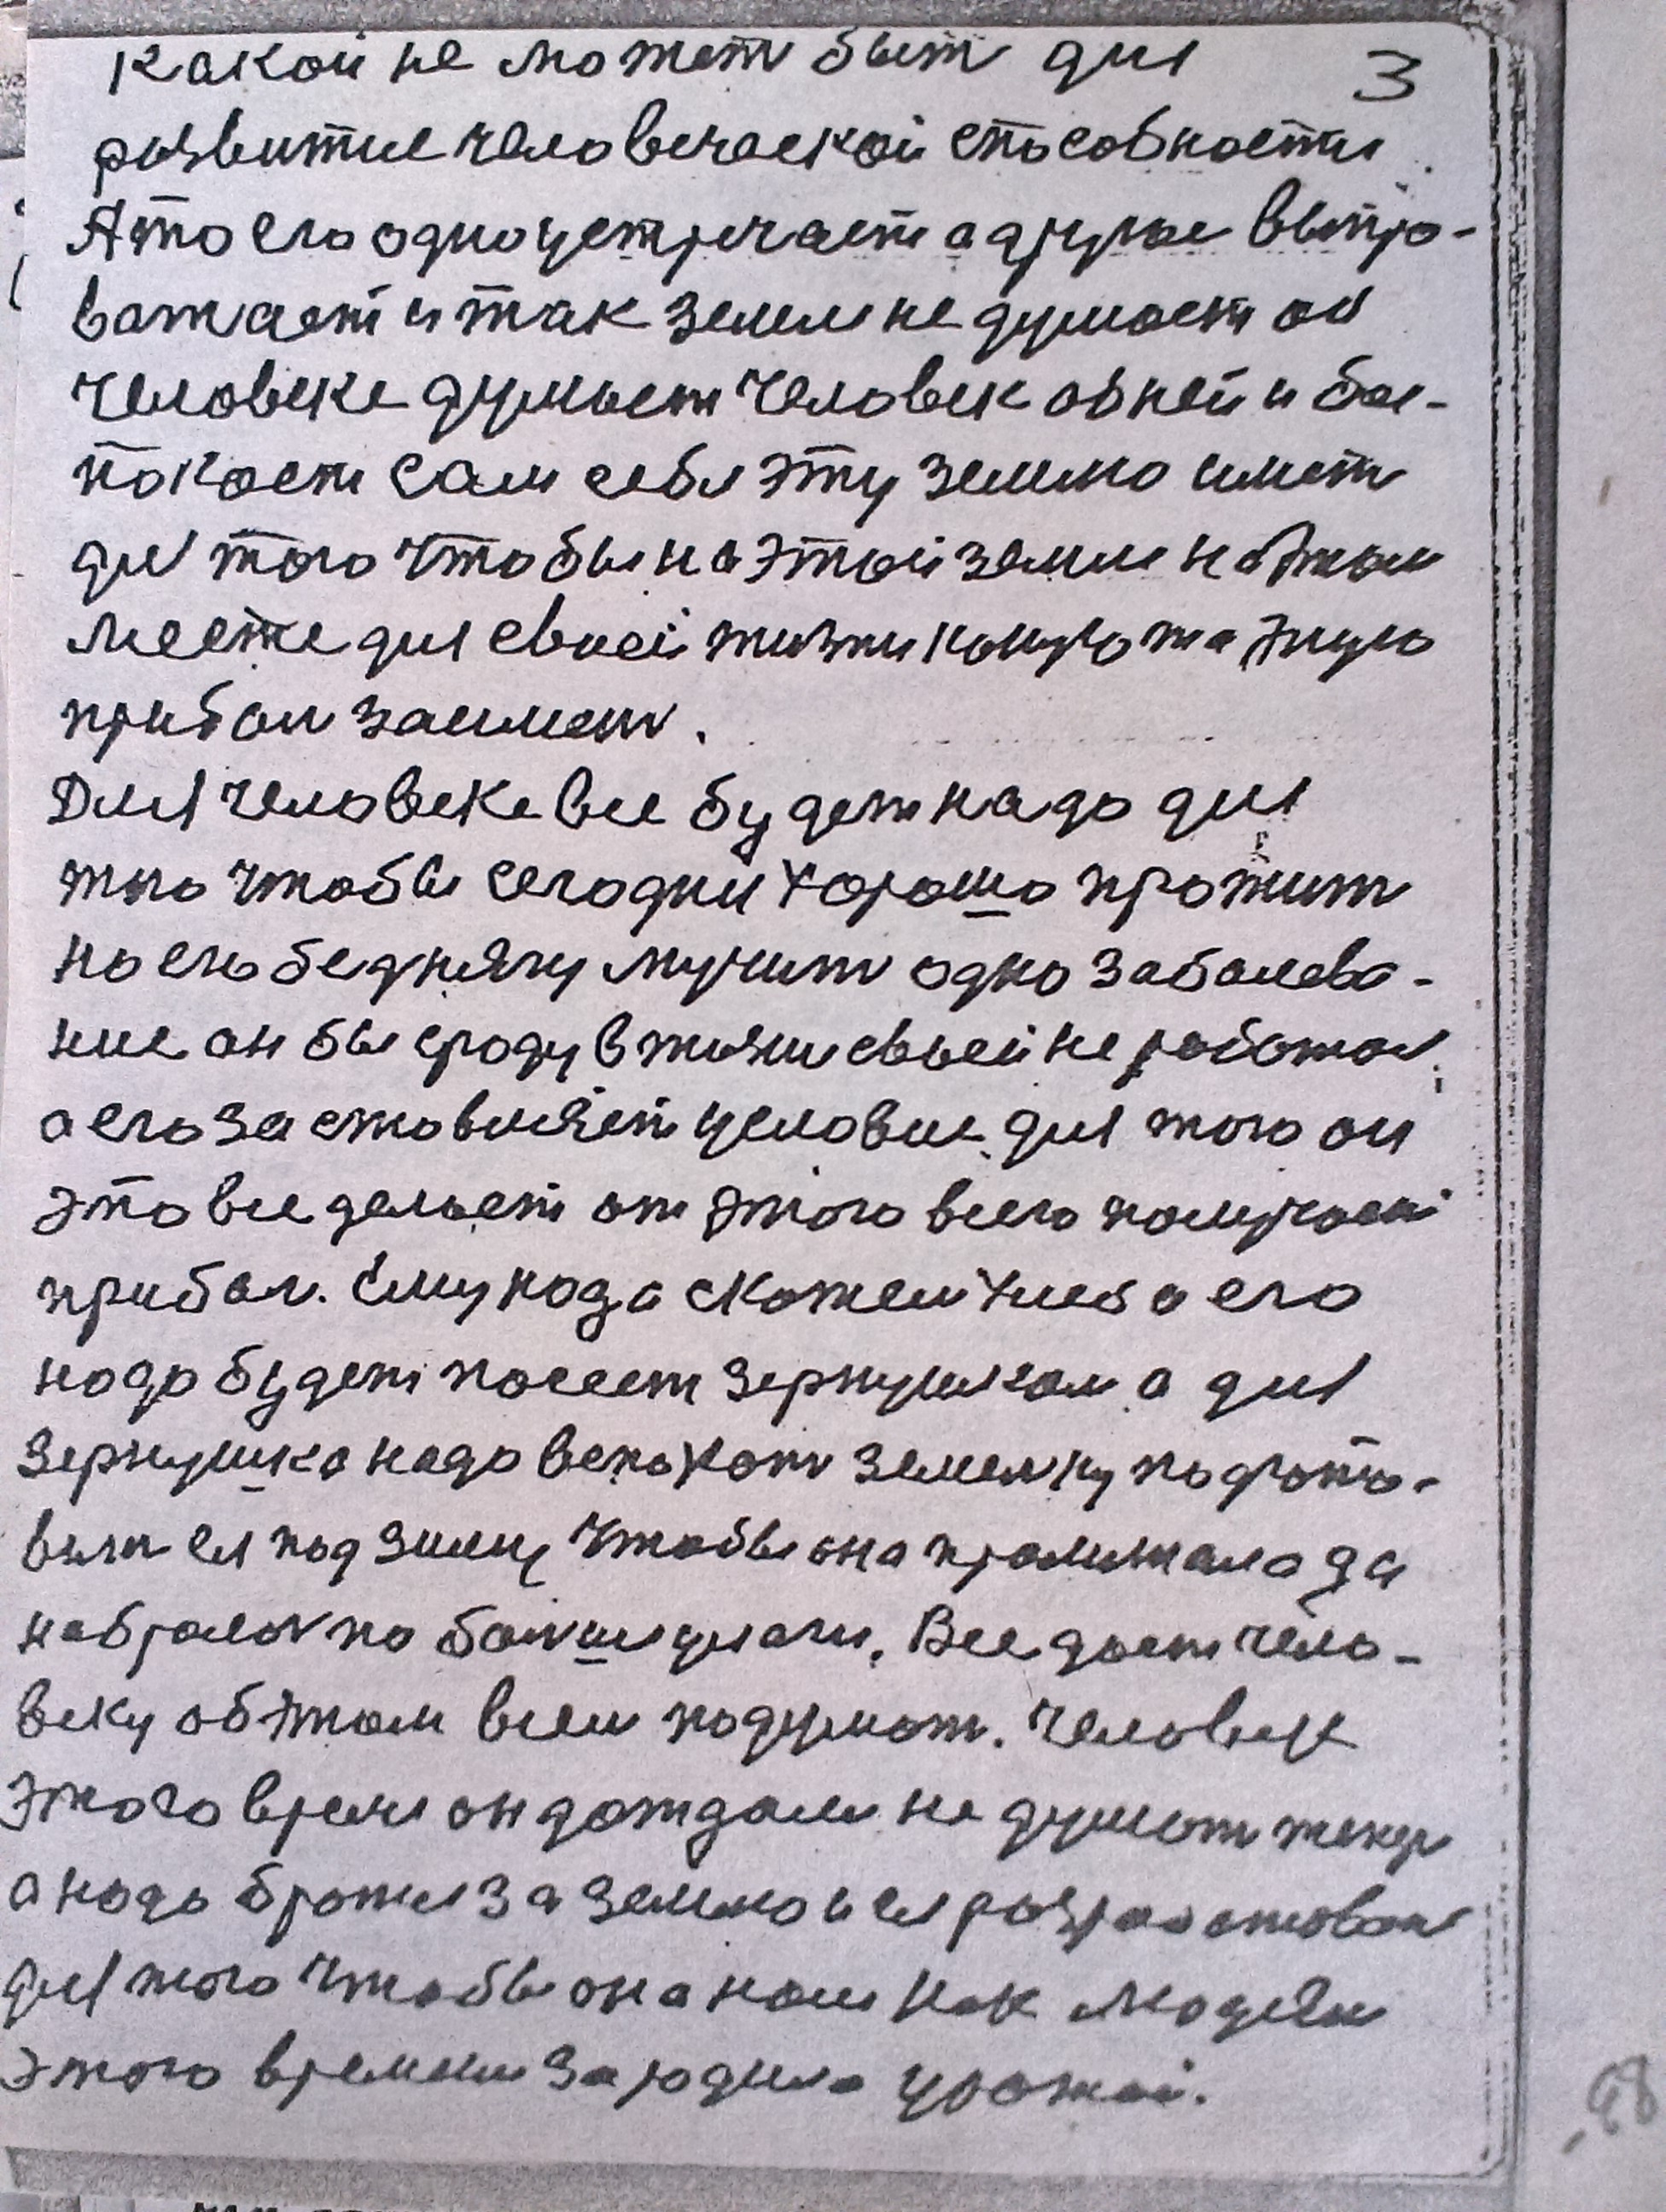 какой не может быт для 3
развитие человеческой способности
А то его одно устречает а другое выпро-
важает и так земля не думает об
человеке думает человек об ней и бес-
покоет сам себя эту землю имет
для того чтобы на этой земле на этом
месте для своей жизни какую та эную
прибол заимет.
Для человеке все будет надо для
того чтобы сегодни хорошо прожит
но его бедняягу мучит одно заболева-
ние он бы сроду в жизни своей не работал
а его заставляет условие для того он
это все делает от этого всего получает
прибол. Ему нада скажем хлеб а его
надо будет посеет зернушком а для
зернушка надо вспохат земельку подгото-
вит ея под зиму чтобы она пролижала да
набралос по болши улаги. Все дает чело-
веку об этом всем подумат. Человек
этого время он дождалс не думат теперь
а надо братся за землю и ея разработоват
для того чтобы она нам как людям
этого времени зародила урожай.
98